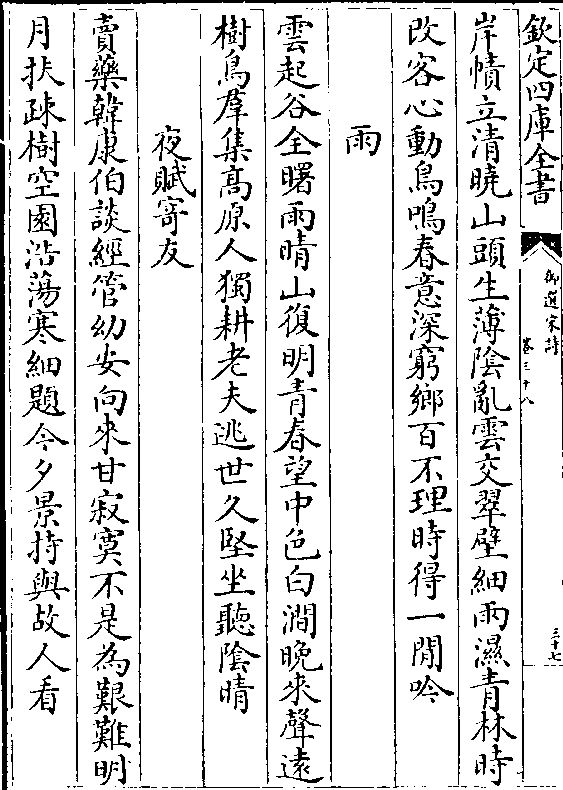 欽定四庫全書
御選宋詩
卷三十八
三十七
岸幘立清曉山頭生薄陰亂雲交翠壁細雨濕青林時
改客心動鳥鳴春意深窮鄉百不理時得一閒吟
雨
雲起谷全曙雨晴山復明青春望中色白澗晩來聲逺
樹鳥羣集髙原人獨耕老夫逃世久堅坐聽陰晴
夜賦寄友
賣藥韓康伯談經管幼安向來甘寂寞不是為艱難明
月扶疎樹空園浩蕩寒細題今夕景持與故人看